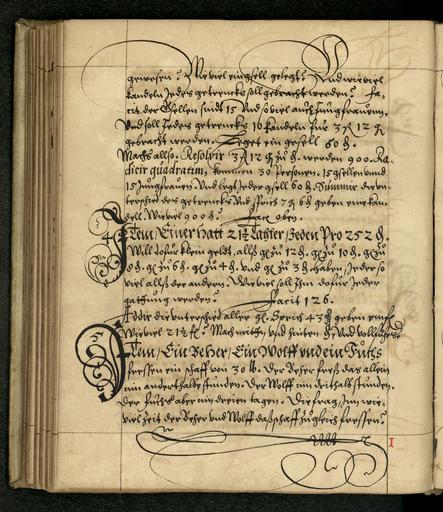 gewesen? Wieviel ein gsell gelegt? Und wieviel
kandeln Jedes getrencks soll gebracht werden? Fa-
cit der Gsellen sindt 15 Und so viel auch Jungfrauen.
Und soll Jedes getrencks 10 kandeln für 3 12
gebracht werden. Leget ein gesell 60 ₰.
Machs also. Resolvir 3 12 zu ₰. werden 900. Ra-
dicir quadratim, kommen 30 Personen. 15 gsellen und
15 Jungfrauen. Und legt Jeder gsell 60 ₰. Summir die un-
terschied des getrencks und sprich 6 ₰ geben eine kan-
dell. Wieviel 900 ₰? Fac: oben.
4 Item Einer hatt 21½ Thaler Jeden Pro 252 ₰.
Will dafür klein geldt, alls zu 12 ₰. zu 10 ₰. zu
8 ₰. zu 6 ₰. zu 4 ₰. und zu 3 ₰ haben, Jeder so
viel allss der andern. Wieviel soll Ihm dafür Jeder
gattung werden? Facit 126.
Addir die unterschied aller Sprich 43 geben ein
Wieviel 21½ Mach mitten und hinten ₰, Und vollführs
5 Item, Ein Beher, Ein Wolff und ein Fuchs
fressen ein schaff von 30 lb. Der Beher fress das allein
inn anderthalb stunden. Der Wolff inn drithalb stunden.
Der fuchs aber inn dreien tagen. Die frag, Inn wie-
viel zeit der Beher und Wolff das schaff zugleich fressen?
1